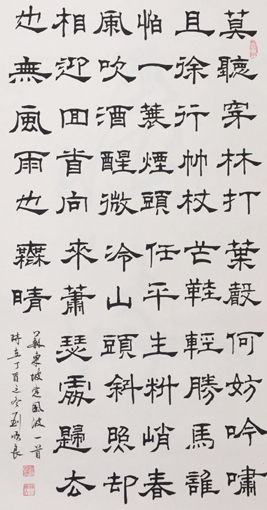 莫聽穿林打葉聲何妨吟嘯
且徐行竹杖芒鞋輕勝馬誰
怕一蓑煙頭任平生料峭春
風吹酒醒微冷山頭斜照却
相迎回首向來蕭瑟處歸去
也無風雨也無晴
蘇東坡定風波一首
時在丁酉之冬劉良